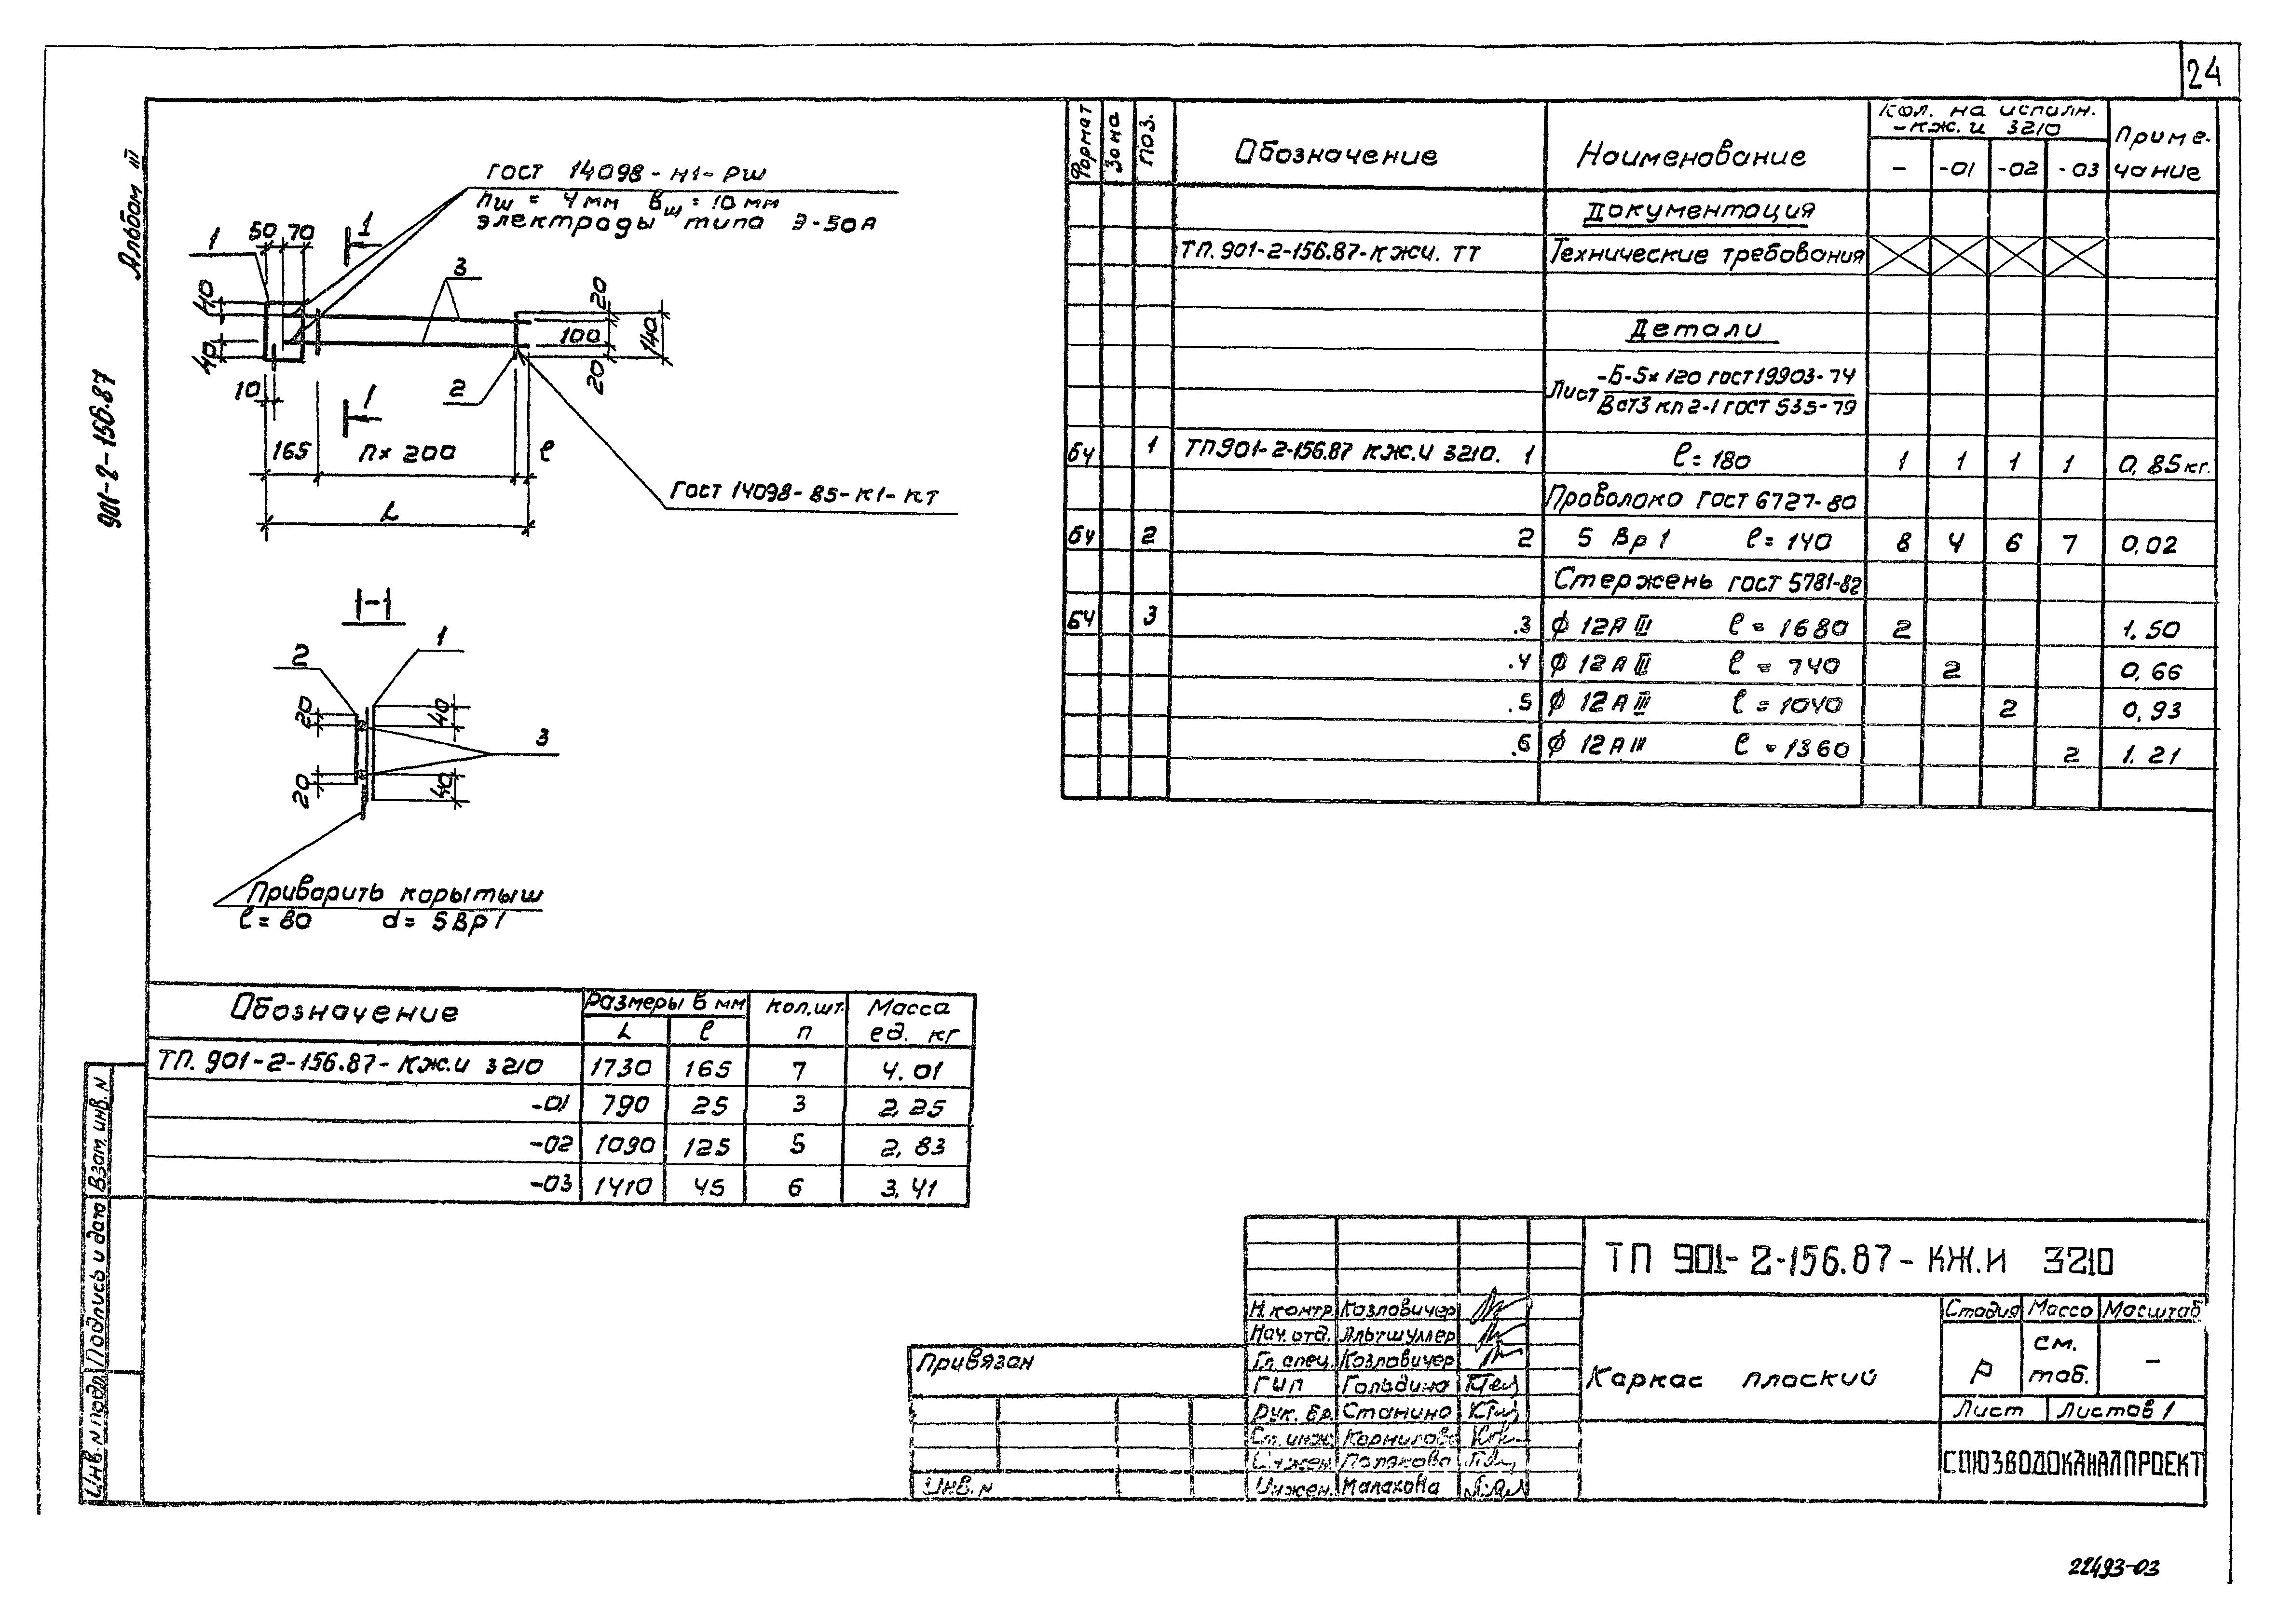 24
Альбом III
901-2-156.87
ГОСТ 14098-Н1-РШ
hш = 4мм bш = 10мм
электроды типа Э-50А
1
50 70
1
3
40
40
20
100
20
140
10
2
1
165 n×200 ℓ
L
ГОСТ 14098-85-К1-КТ
1-1
2
1
20
40
3
20
40
Приварить коротыш
ℓ=80 d=5Вр1
Формат Зона Поз. Обозначение Наименование Кол. на исполн. -КЖ.И 3210 Приме-чание
- -01 -02 -03
Документация
ТП.901-2-156.87-КЖИ.ТТ Технические требования
Детали
Лист -Б-5×120 ГОСТ19903-74
ВСт3 кп2-1 ГОСТ 535-79
БЧ 1 ТП901-2-156.87 КЖ.И 3210. 1 ℓ=180 1 1 1 1 0,85кг.
Проволока ГОСТ 6727-80
БЧ 2 2 5 Вр1 ℓ=140 8 4 6 7 0,02
Стержень ГОСТ 5781-82
БЧ 3 .3 ф12АIII ℓ=1680 2 1.50
.4 ф12АIII ℓ=740 2 0,66
.5 ф12АIII ℓ=1040 2 0,93
.6 ф12АIII ℓ=1360 2 1.21
Обозначение Размеры в мм Кол,шт. Масса
L ℓ n ед. кг
ТП.901-2-156.87-КЖ.И 3210 1730 165 7 4.01
-01 790 25 3 2,25
-02 1090 125 5 2,83
-03 1410 45 6 3,41
Взам. инв. N
Подпись и дата
Инв. N подл.
Привязан
Инв. N
ТП 901-2-156.87-КЖ.И 3210
Н.контр. Козловичер
Нач.отд. Альтшуллер
Гл.спец. Козловичер
ГИП Гольдина
Рук.бр. Станина
Ст.инж. Корнилова
Полякова
Инжен. Малахова
Каркас плоский
Стадия Масса Масштаб
Р см. таб. -
Лист Листов 1
СОЮЗВОДОКАНАЛПРОЕКТ
22493-03